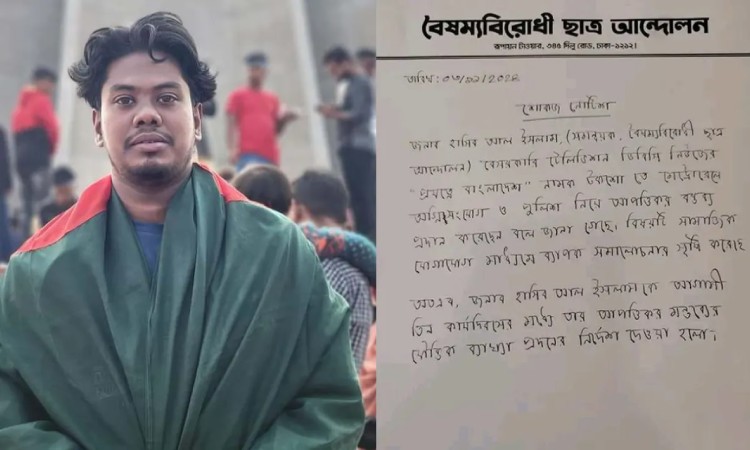 বৈষম্যবিরোধী ছাত্র আন্দোলন
রূপায়ন টাওয়ার, ৩৪৫ দিলু রোড, ঢাকা-১২১২।
তারিখ:
শোকজ নোটিশ
জনাব হাসিব আল ইসলাম, (সমন্বয়ক, বৈষম্যবিরোধী ছাত্র
আন্দোলন) "বেসরকারি টেলিভিশন ডিবিসি নিউজের
"প্রযত্নে বাংলাদেশ" নামক টকশো তে মেট্রোরেলে
অগ্নিসংযোগ ও পুলিশ নিয়ে আপত্তিকর বক্তব্য
প্রদান করেছেন বলে জানা গেছে, বিষয়টি সামাজিক
যোগাযোগ মাধ্যমে ব্যাপক সমালোচনার সৃষ্টি করেছে
অতএব, জনাব হাসিব আল ইসলাম কে আগামী
তিন কার্যদিবসের মধ্যে তার আপত্তিকর মন্তব্যের
যৌক্তিক ব্যাখ্যা প্রদানের নির্দেশ দেওয়া হলো।